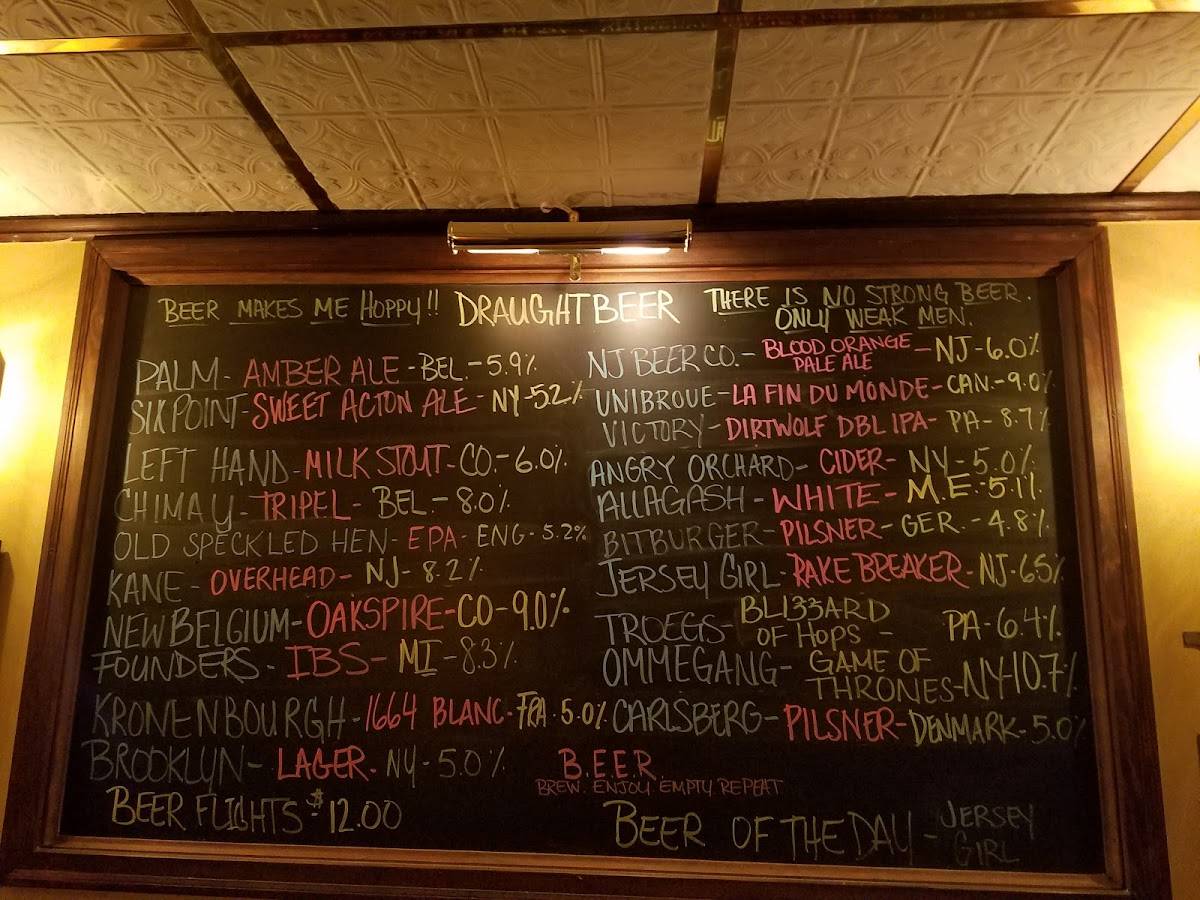 BEER MAKES ME HOPPY!!
DRAUGHT BEER
THERE IS NO STRONG BEER.
ONLY WEAK MEN.
PALM - AMBER ALE - BEL. - 5.9%
SIXPOINT - SWEET ACTON ALE - NY - 5.2%
LEFT HAND - MILK STOUT - CO. - 6.0%
CHIMAY - TRIPEL - BEL - 8.0%
OLD SPECKLED HEN - EPA - ENG - 5.2%
KANE - OVERHEAD - NJ - 8.2%
NEW BELGIUM - OAKSPIRE - CO - 9.0%
FOUNDERS - IBS - MI - 8.3%
KRONENBOURGH - 1664 BLANC - FRA. 5.0%
BROOKLYN - LAGER - NY - 5.0%
BEER FLIGHTS - $12.00
NJ BEER CO. - BLOOD ORANGE
PALE ALE - NJ - 6.0%
UNIBROUE - LA FIN DU MONDE - CAN. - 9.0%
VICTORY - DIRTWOLF DBL IPA - PA - 8.7%
ANGRY ORCHARD - CIDER - NY - 5.0%
ALLAGASH - WHITE - M.E. - 5.1%
BITBURGER - PILSNER - GER. - 4.8%
JERSEY GIRL - RAKE BREAKER - NJ - 6.5%
TROEGS - BLIZZARD
OF HOPS - PA - 6.4%
OMMEGANG - GAME OF
THRONES - NY - 10.7%
CARLSBERG - PILSNER - DENMARK - 5.0%
B.E.E.R.
BREW. ENJOY. EMPTY. REPEAT
BEER OF THE DAY - JERSEY
GIRL